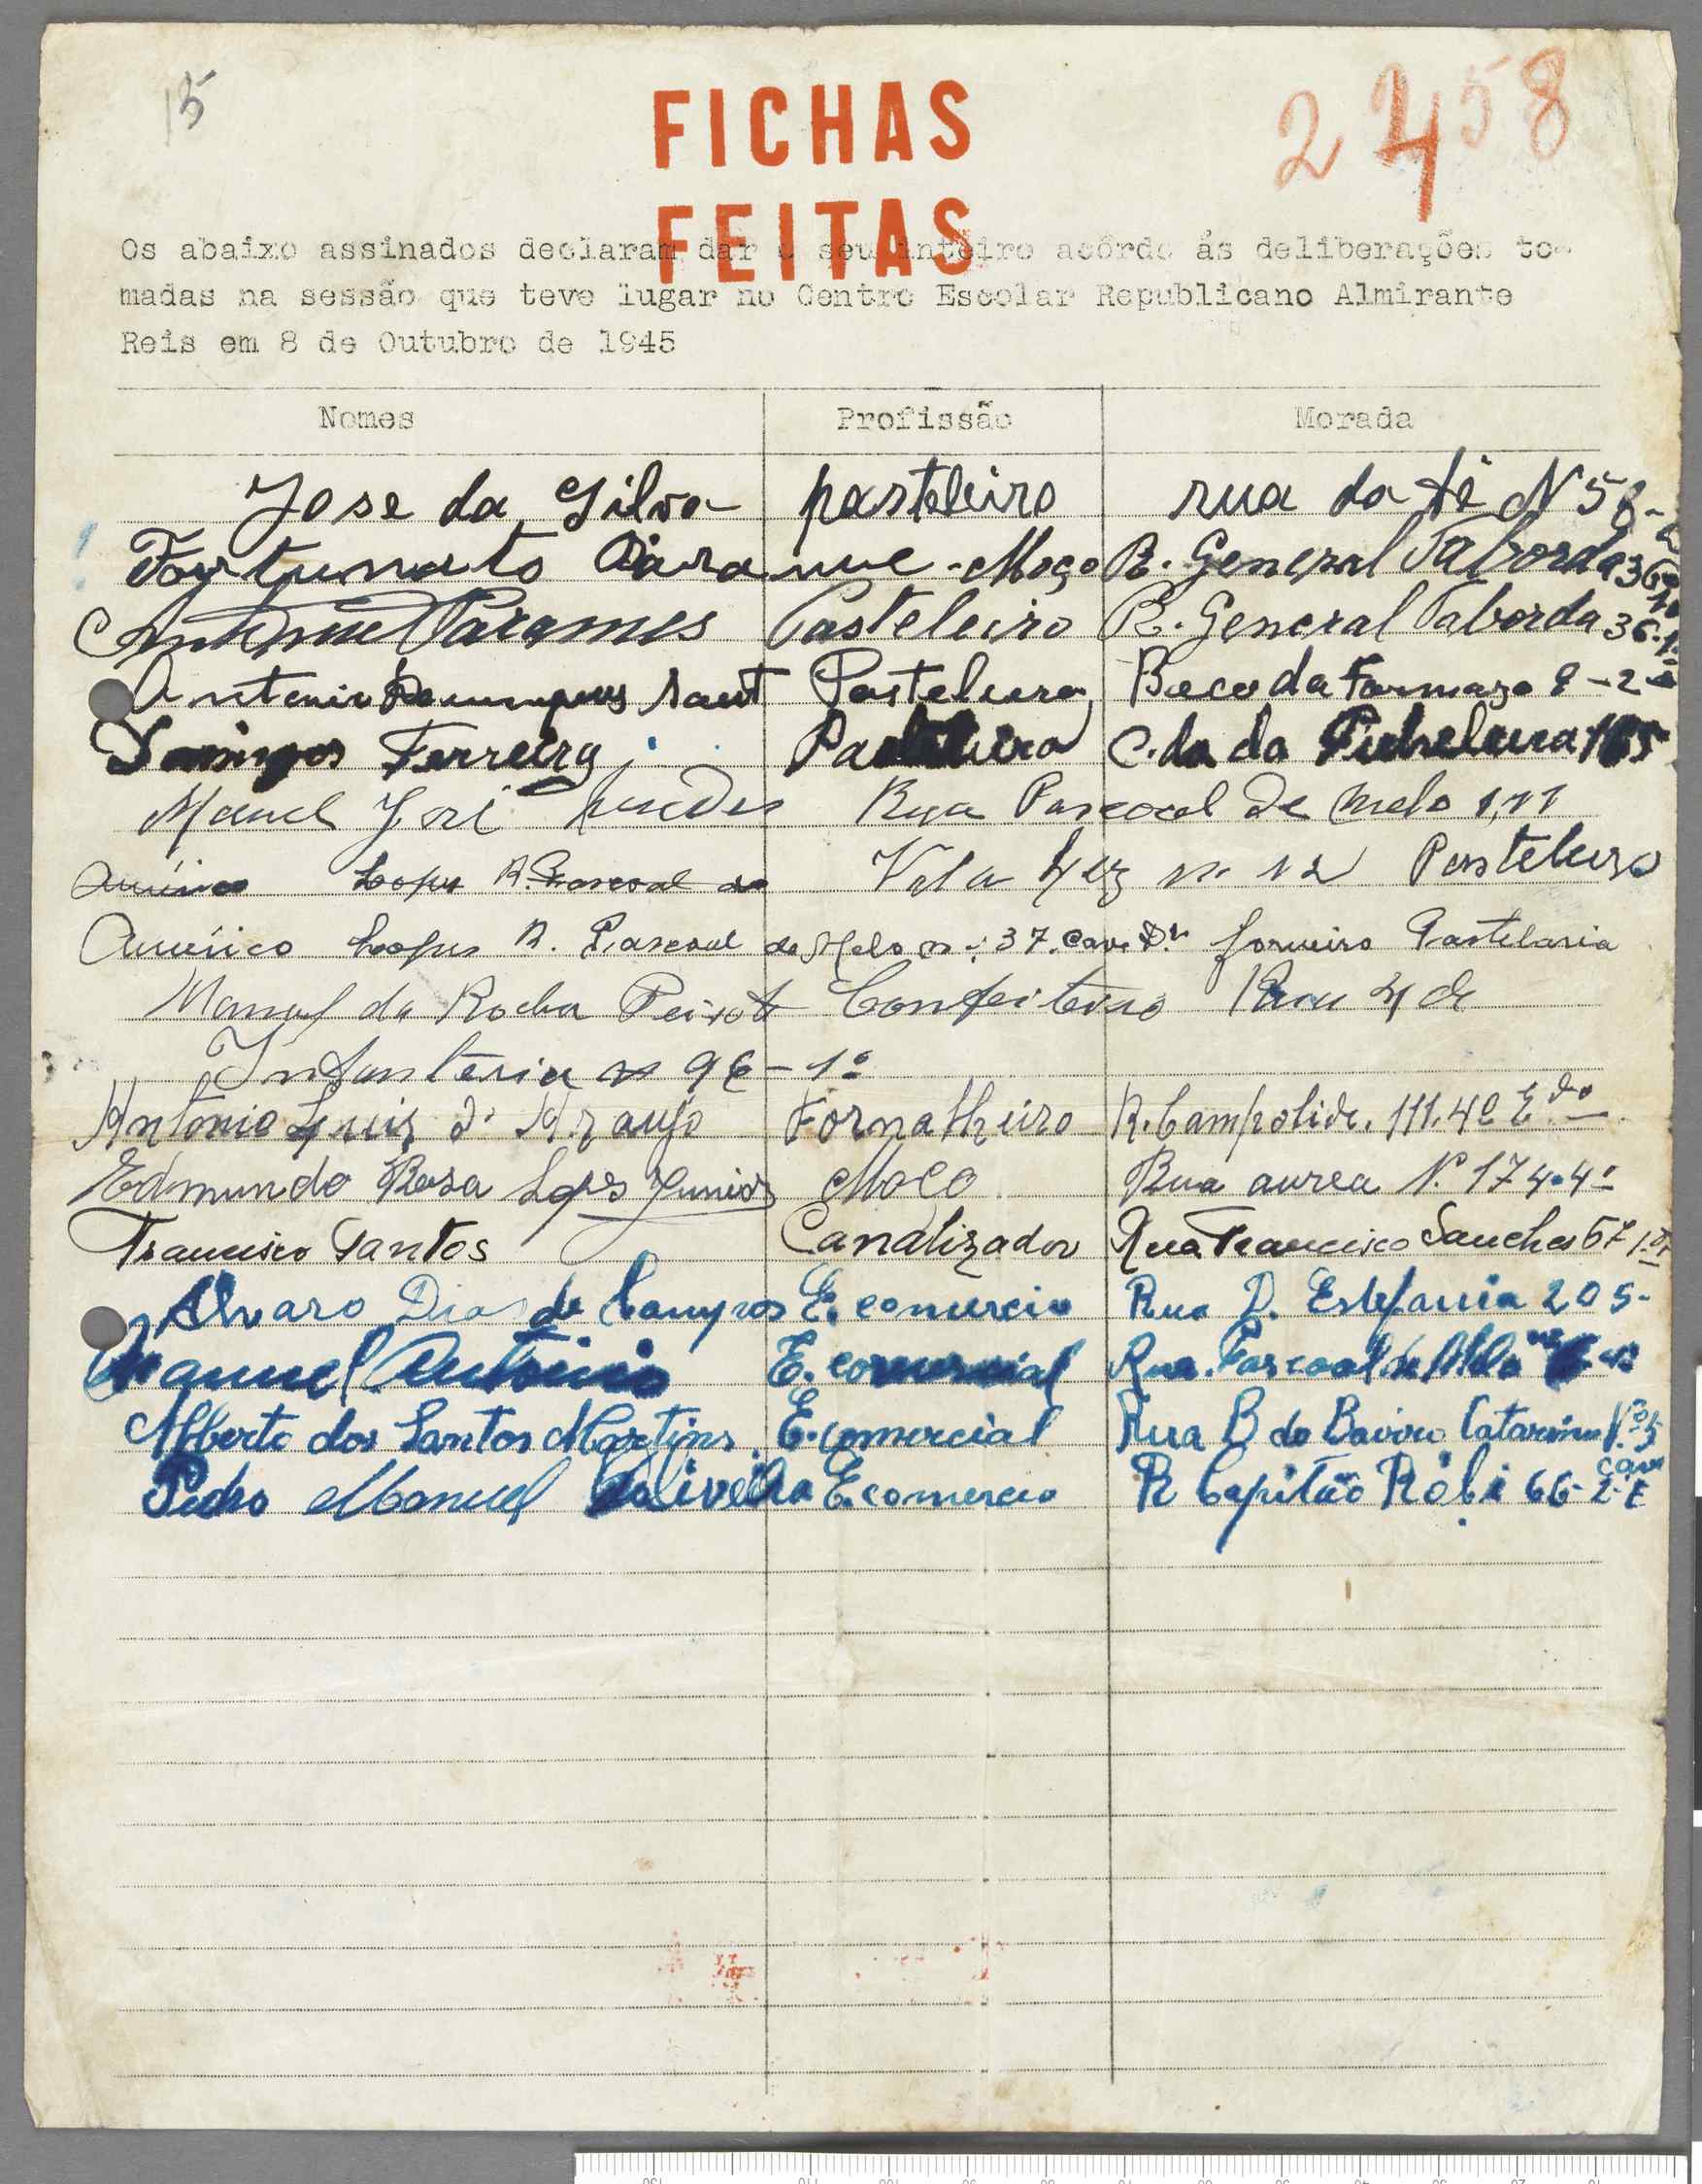 15
FICHAS
2458
FEITAS
Os abaixo assinados declaram dar o seu inteiro acôrdo ás deliberações to-
madas na sessão que teve lugar no Centro Escolar Republicano Almirante
Reis em 8 de Outubro de 1945
Nomes Profissão Morada
Jose da Silva pasteleiro rua da fé N 58-2
Fortunato Moço R. General Taborda 36
Parames Pasteleiro R. General Taborda 36-1º
Antonio Domingues Sant Pasteleiro Beco da Formazo 8-2º
Domingos Ferreira Pasteleiro C. da da Picheleira 165
Manuel José Guedes Rua Pascoal de Melo 1,11
Américo Lopes R. Pascoal de Vila Luz nº 12 Pasteleiro
Américo Lopes R. Pascoal de Melo nº 37. Cave Dº forneiro Pastelaria
Manuel da Rocha Peixoto Confeiteiro Rua 4 de
Infanteria nº 96-1º
Antonio Luiz d' Araujo Fornalheiro R. Campolide. 111. 4º E.do
Edmundo Rosa Lopes Junior Moço Rua aurea Nº 174-4º
Francisco Santos Canalizador Rua Francisco Sanches 67 1º D
Alvaro Dias de Campos E. comercio Rua D. Estefania 205-
Manuel Antonio E. comercial Rua. Pascoal de Melo
Alberto dos Santos Martins. E. comercial Rua B do Bairro Catarino Nº 5
cave
Pedro Manuel Daliveira E. comercio R Capitão Róbi 66-2-E